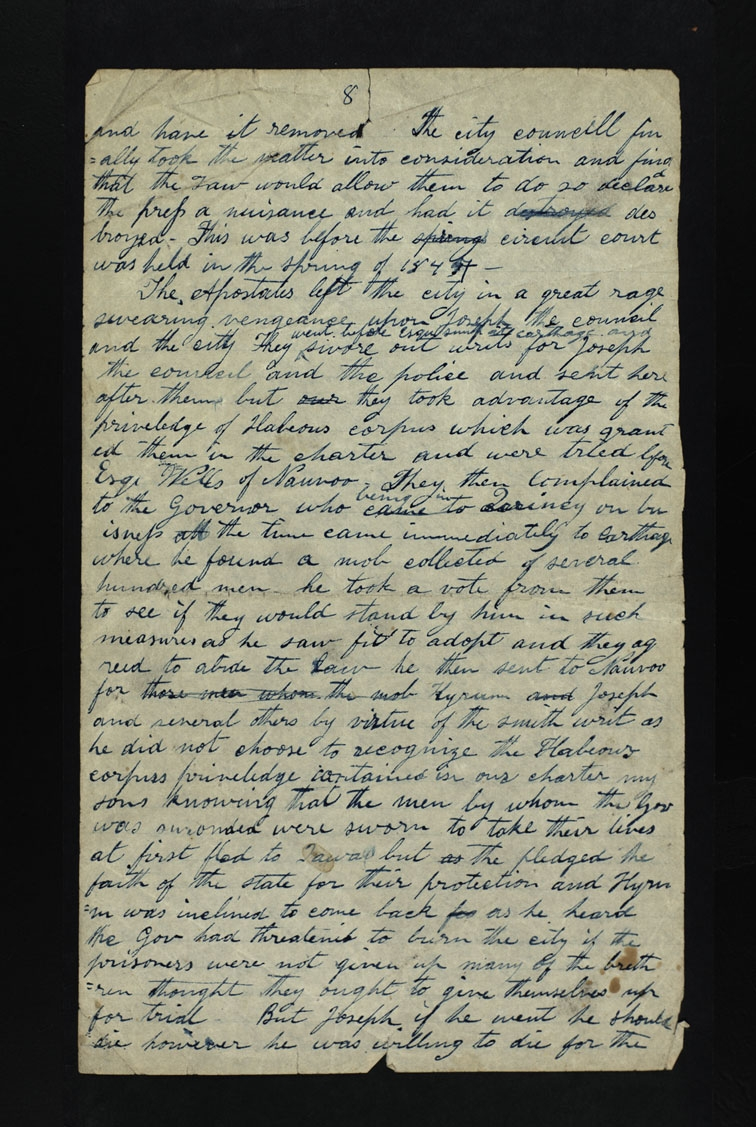 8
and have it removed. The city councill fin
=ally took the matter into consideration and find
that the Law would allow them to do so declare
the press a nuisance and had it destroyed des
troyed - This was before the spring circuit court
was held in the spring of 1844 -
The Apostates left the city in a great rage
swearing vengeance upon Joseph the council
went before esqu smith at carthage and
and the city They swore out writs for Joseph
the council and the police and sent here
after them but our they took advantage of the
priveledge of Habeous corpus which was grant
ed them in the charter and were tried before
Esqr Wells of Nauvoo - They then complained
being in
to the Governor who came to Quincy on bu
isness at the time came immediately to Carthage
where he found a mob collected of several
hundred men he took a vote from them
to see if they would stand by him in such
measures as he saw fit to adopt and they ag
reed to abide the Law he then sent to Nauvoo
for those men whom the mob Hyrum and Joseph
and several others by virtue of the smith writ as
he did not choose to recognize the Habeous
corpus priveledge contained in our charter my
sons knowing that the men by whom the Gov
was suronded were sworn to take their lives
at first fled to Iawa but as the pledged the
faith of the state for their protection and Hyru
=m was inclined to come back for as he heard
the Gov had threatened to burn the city if the
prisoners were not given up many of the breth
=ren thought they ought to give themselves up
for trial But Joseph if he went he should
die however he was willing to die for the